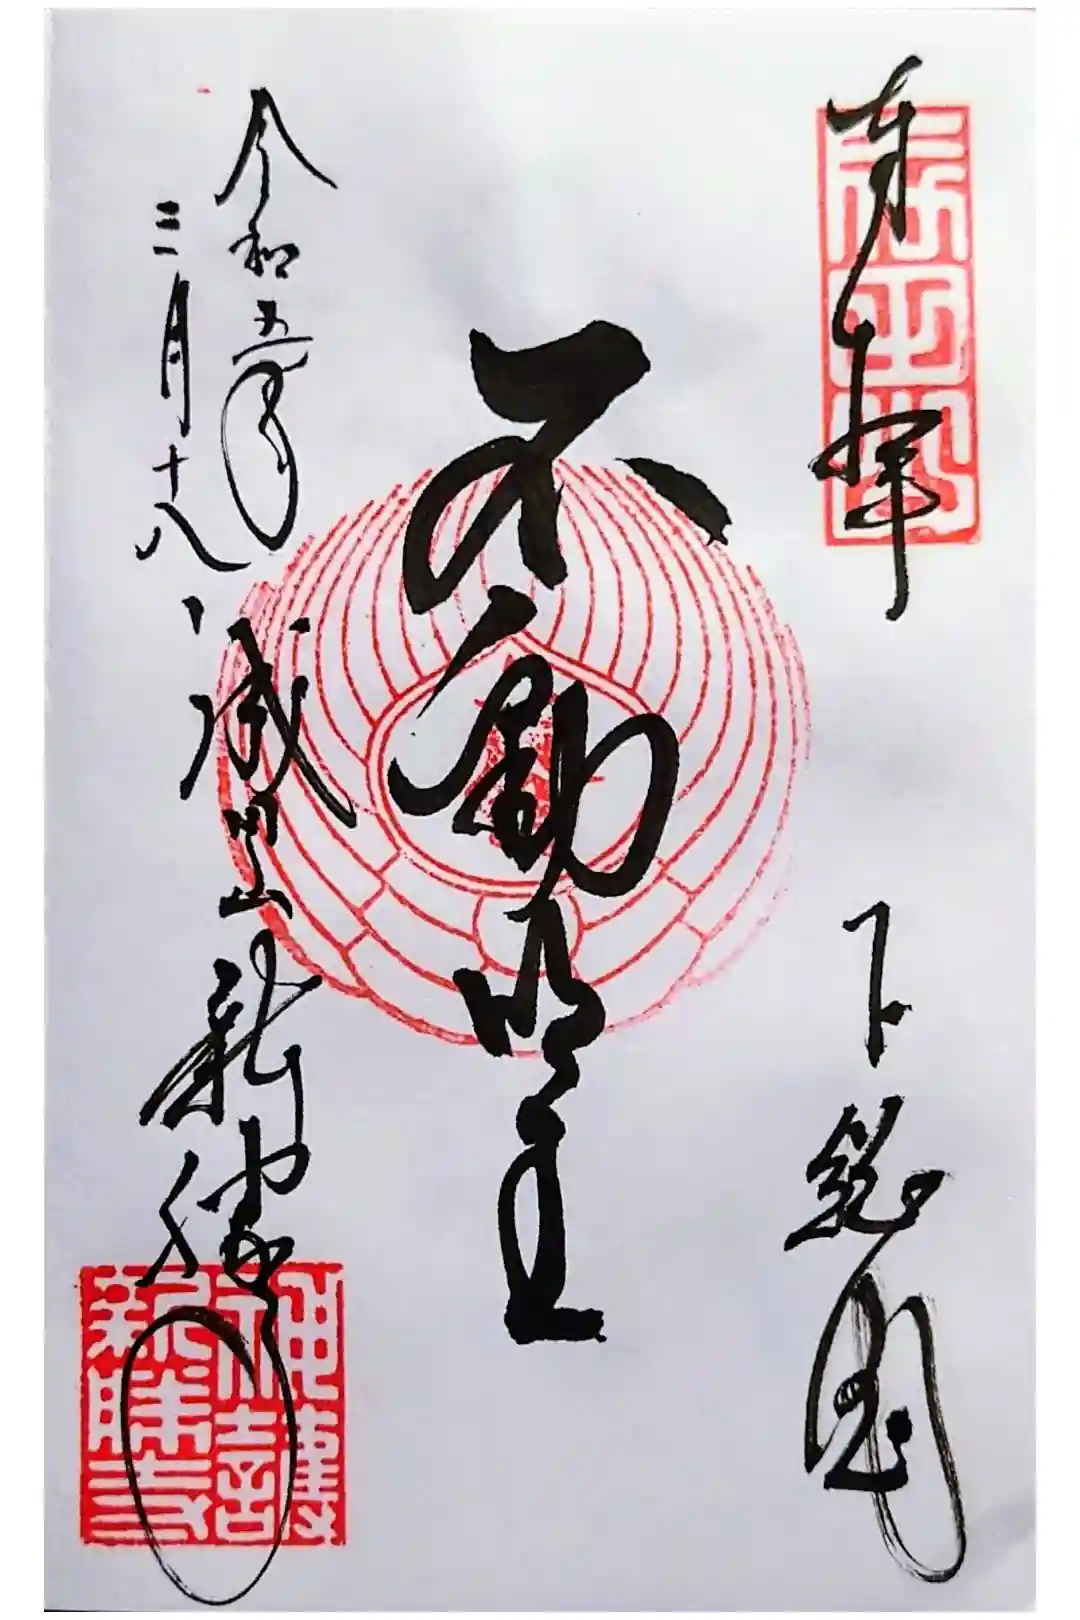 奉拝
下総国
成田山
不動明王
令和五年
三月十八
成田山新勝寺
神護新勝寺